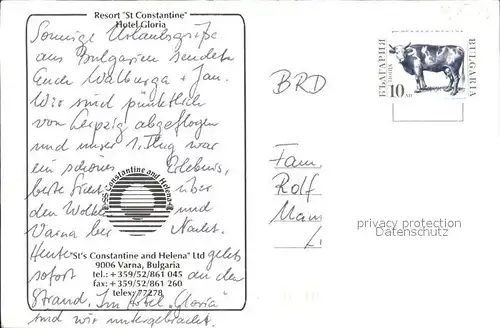 Resort "St Constantine"
Hotel Gloria
Sonnige Urlaubsgrüße
aus Bulgarien senden
Euch Walburga + Jan.
Wir sind pünktlich
von Leipzig abgeflogen
und unser 1. Flug war
ein schönes Erlebnis,
beste Sicht über
den Wolken und
Varna bei Nacht.
Heute geht's
sofort an den
Strand. Im Hotel "Gloria"
sind wir untergebracht.
SS Constantine and Helena
"St's Constantine and Helena" Ltd
9006 Varna, Bulgaria
tel.: +359/52/861 045
fax: +359/52/861 260
telex: 77278
БЪЛГАРИЯ
ПОЩА
BULGARIA
10
BRD
Fam.
Rolf
privacy protection
oldthing.com